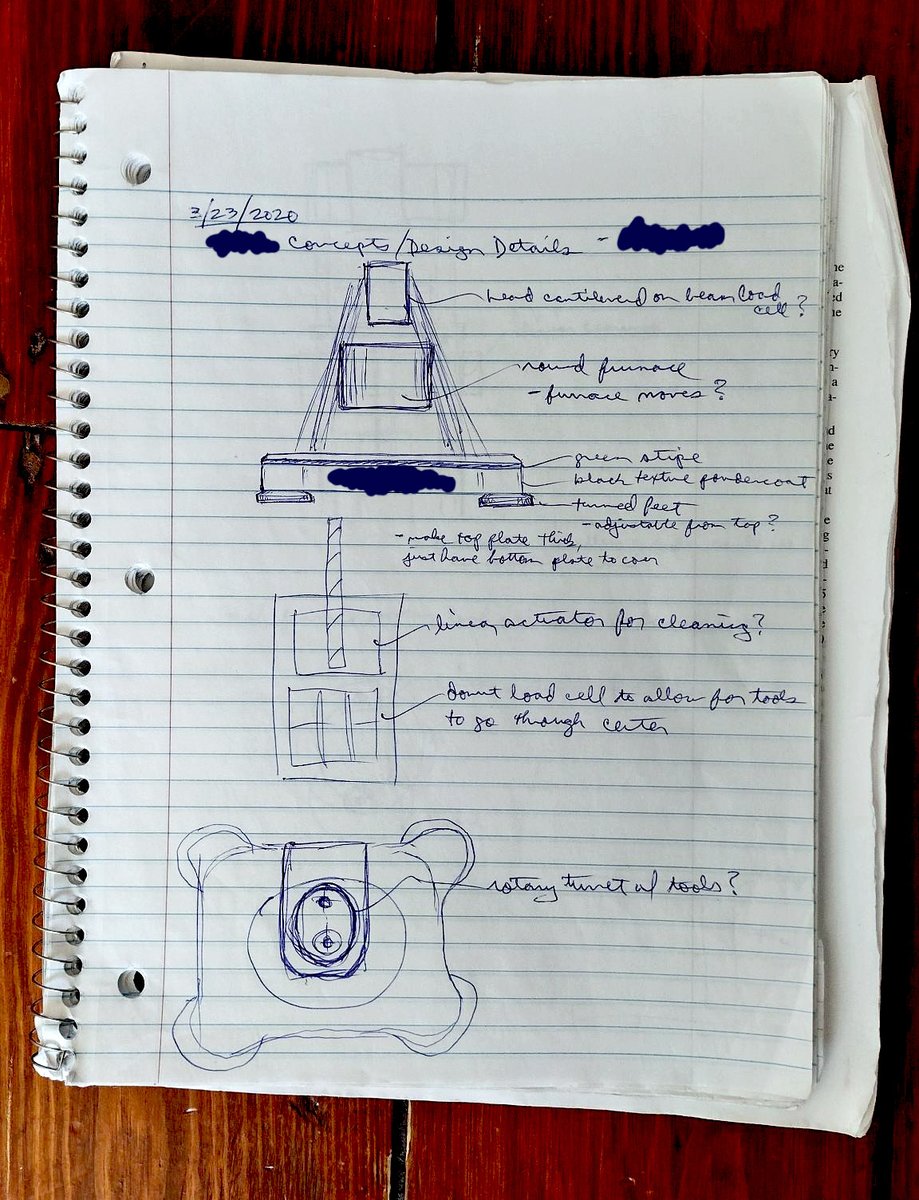 3/23/2020
Concepts/Design Details -
head cantilevered on beam load
cell?
round furnace
- furnace moves?
green stripe
black texture powdercoat
turned feet
- adjustable from top?
- make top plate thick,
just have bottom plate to cover
linear actuator for cleaning?
donut load cell to allow for tools
to go through center
rotary turret w/ tools?